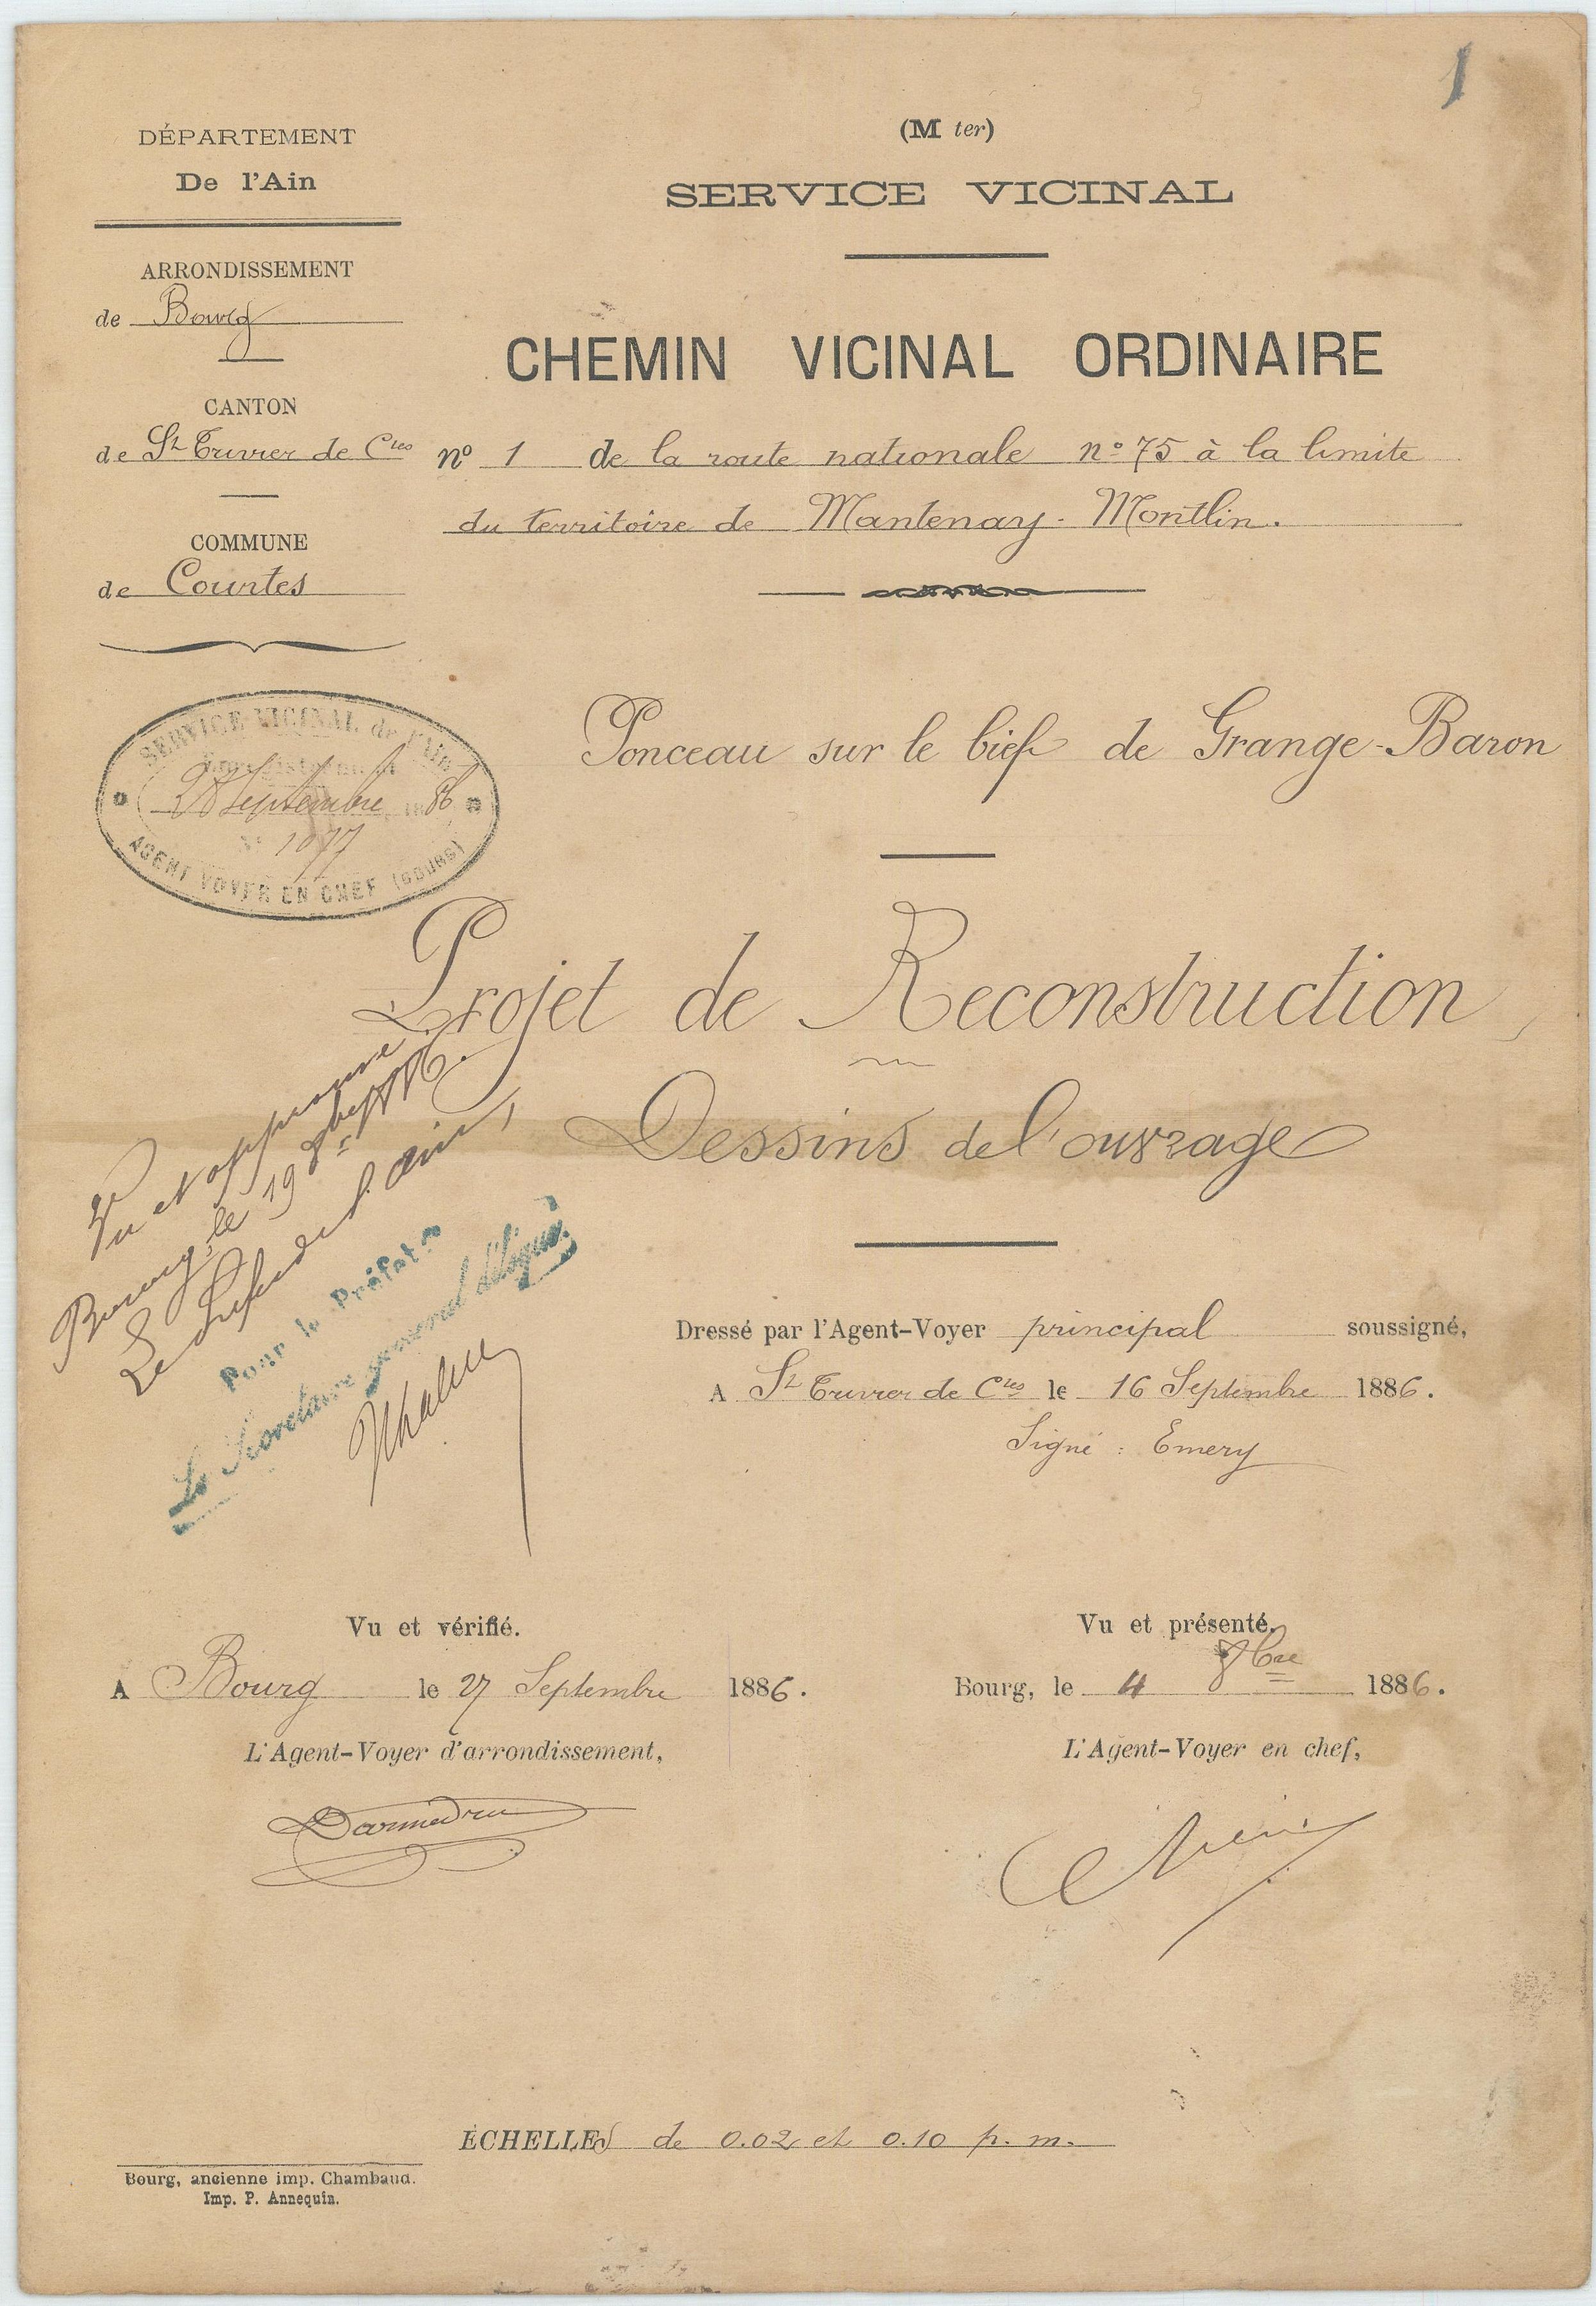 1
DÉPARTEMENT
De l'Ain
ARRONDISSEMENT
de Bourg
CANTON
de St Trivier de Ctes
COMMUNE
de Courtes
(M ter)
SERVICE VICINAL
CHEMIN VICINAL ORDINAIRE
no 1 de la route nationale no 75 à la limite
du territoire de Mantenay-Montlin.
SERVICE VICINAL de l'AIN
Enregistrement
28 Septembre 1886
No 1077
AGENT VOYER EN CHEF (BOURG)
Ponceau sur le bief de Grange-Baron
Projet de Reconstruction
Dessins de l'ouvrage
Vu et approuvé
Bourg, le 19 8bre 1886.
Le Préfet de l'Ain,
Pour le Préfet :
Le Secrétaire général délégué.
Dressé par l'Agent-Voyer principal soussigné,
A St Trivier de Ctes le 16 Septembre 1886.
Signé : Emery
Vu et vérifié.
A Bourg le 27 Septembre 1886.
L'Agent-Voyer d'arrondissement,
Vu et présenté.
Bourg, le 4 8bre 1886.
L'Agent-Voyer en chef,
ÉCHELLES de 0.02 et 0.10 p. m.
Bourg, ancienne imp. Chambaud.
Imp. P. Annequin.